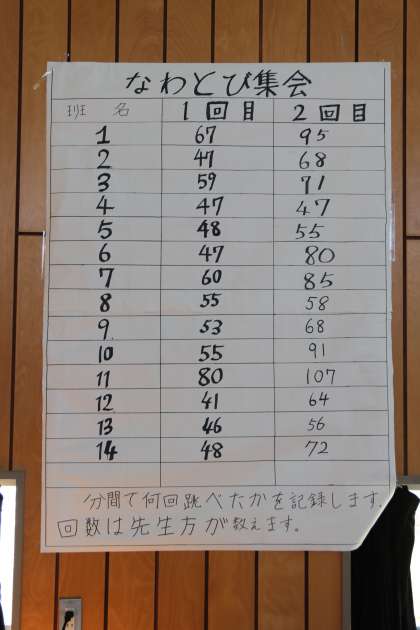 なわとび集会
班 名 1回目 2回目
1 67 95
2 47 68
3 59 71
4 47 47
5 48 55
6 47 80
7 60 85
8 55 58
9 53 68
10 55 91
11 80 107
12 41 64
13 46 56
14 48 72
分間で何回跳べたかを記録します.
回数は先生方が教えます。